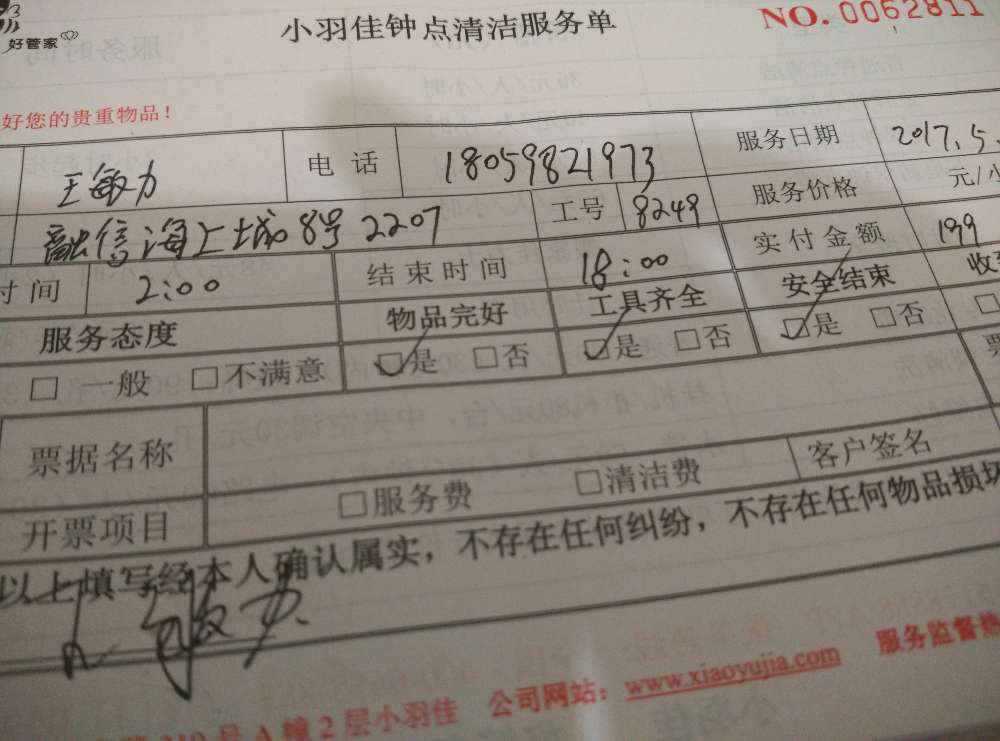 好管家
小羽佳钟点清洁服务单
NO. 0062811
好您的贵重物品!
王敏力 电话 18059821973 服务日期 2017.5.
融信海上城8号2207 工号 8249 服务价格 元/小
时间 2:00 结束时间 18:00 实付金额 199
服务态度 物品完好 工具齐全 安全结束 收
□ 一般 □ 不满意 ☑是 □否 ☑是 □否 ☑是 □否 □
票据名称 票
开票项目 □服务费 □清洁费 客户签名
以上填写经本人确认属实,不存在任何纠纷,不存在任何物品损坏
号A幢2层小羽佳 公司网站:www.xiaoyujia.com 服务监督热